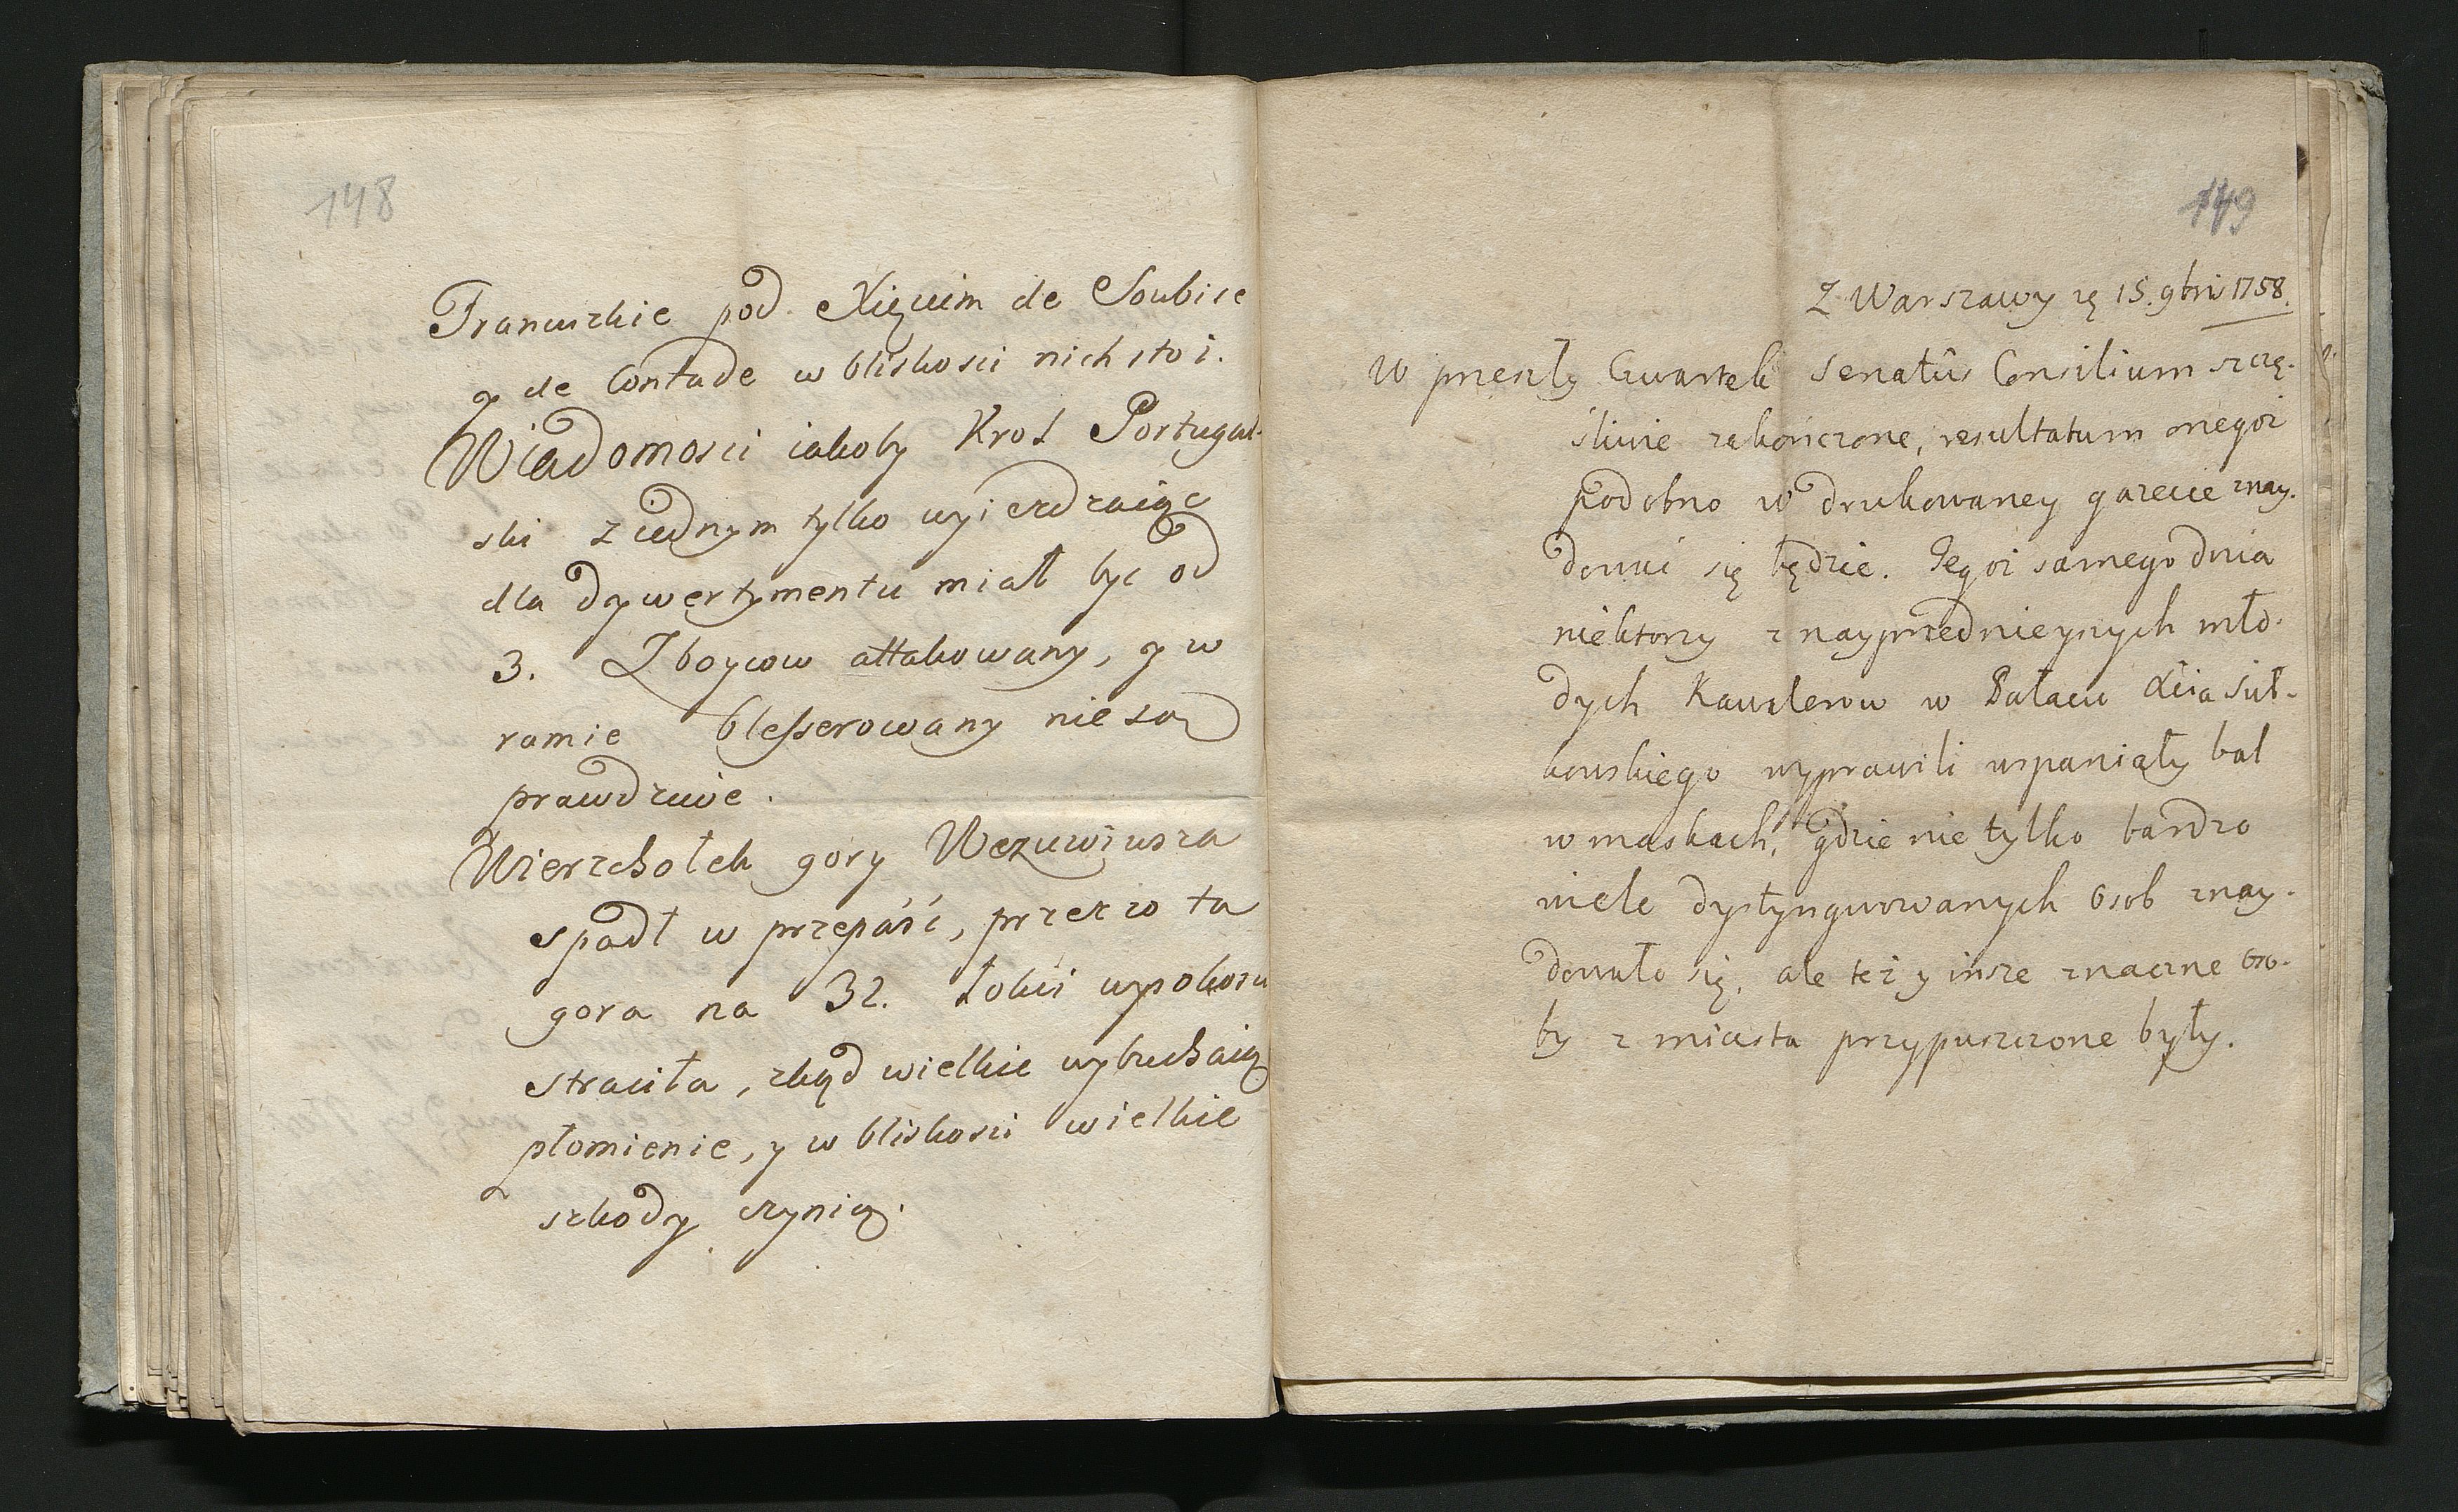 148
Francuzkie pod Xięciem de Soubise
y de Contade w bliskosci nich stoi.
Wiadomosci iakoby Krol Portugal-
ski z iednym tylko wyiezdzaiąc
dla dywertymentu miał byc od
3. Zboycow attakowany, y w
ramie blesserowany nie są
prawdziwe.
Wierzchołek gory Wezuwiusza
spadł w przepaść, przez co ta
gora na 32. łokci wysokosci
straciła, zkąd wielkie wybuchaią
płomienie, y w bliskosci wielkie
szkody czynią.
149
Z Warszawy 15. 9bris 1758.
W przeszły Czwartek Senatûs Consilium szczę-
śliwie zakończone, resultatum onegoż
podobno w drukowaney gazecie znay-
dować się będzie. Tegoż samego dnia
niektorzy z nayprzednieyszych mło-
dych Kawalerow w Pałacu Xcia Suł-
kowskiego wyprawili wspaniały bal
w maskach, gdzie nie tylko bardzo
wiele dystyngwowanych osob znay-
dowało się, ale też y insze znaczne oso-
by z miasta przypuszczone były.